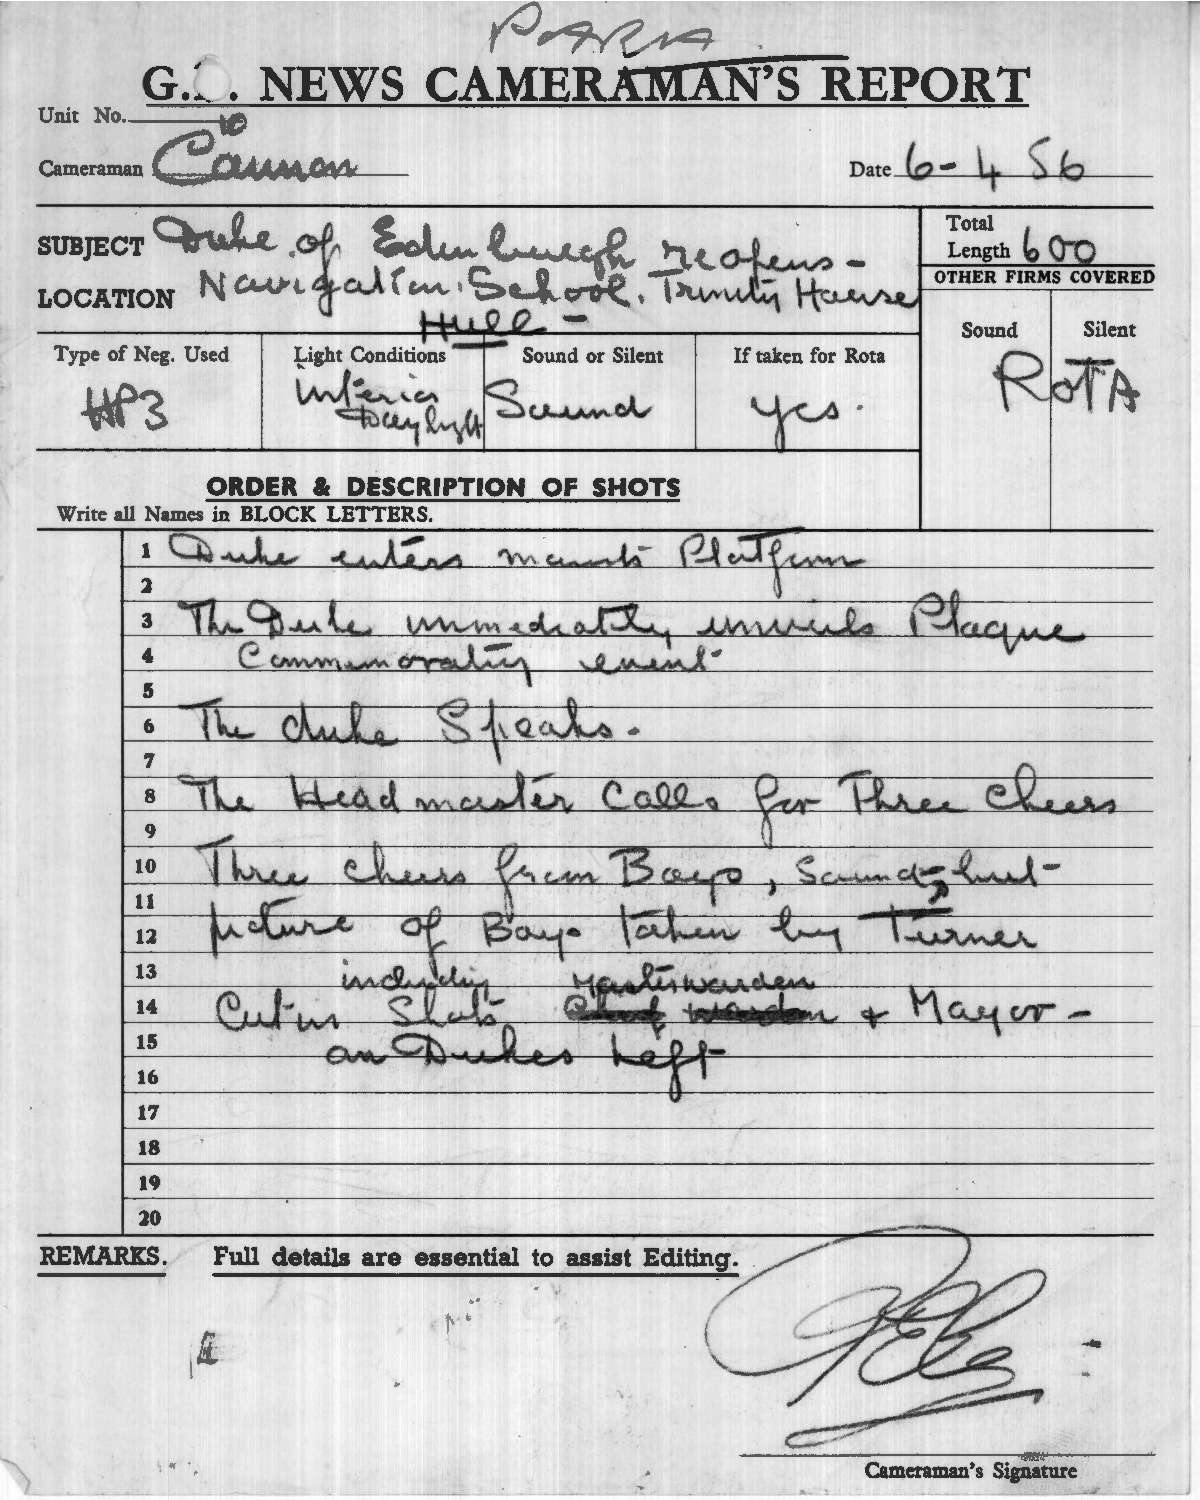 G. . NEWS CAMERAMAN'S REPORT
Unit No. 10
Cameraman Cannon
Date 6-4 56
SUBJECT Duke of Edinburgh reopens -
LOCATION Navigation School. Trinity House
Hull -
Total Length 600
OTHER FIRMS COVERED
Sound Silent
ROTA
Type of Neg. Used Light Conditions Sound or Silent If taken for Rota
HP3 Interior Daylight Sound yes.
ORDER & DESCRIPTION OF SHOTS
Write all Names in BLOCK LETTERS.
1 Duke enters mounts Platform
2
3 The Duke immediatly unveils Plaque
4 Commemorating event
5
6 The duke Speaks.
7
8 The Headmaster Calls for Three Cheers
9
10 Three cheers from Boys, Sound - but
11
12 picture of Boys taken by Turner
13 including Masterwarden
14 Cut in Shots & Mayor -
15 on Dukes Left
16
17
18
19
20
REMARKS. Full details are essential to assist Editing.
Cameraman's Signature